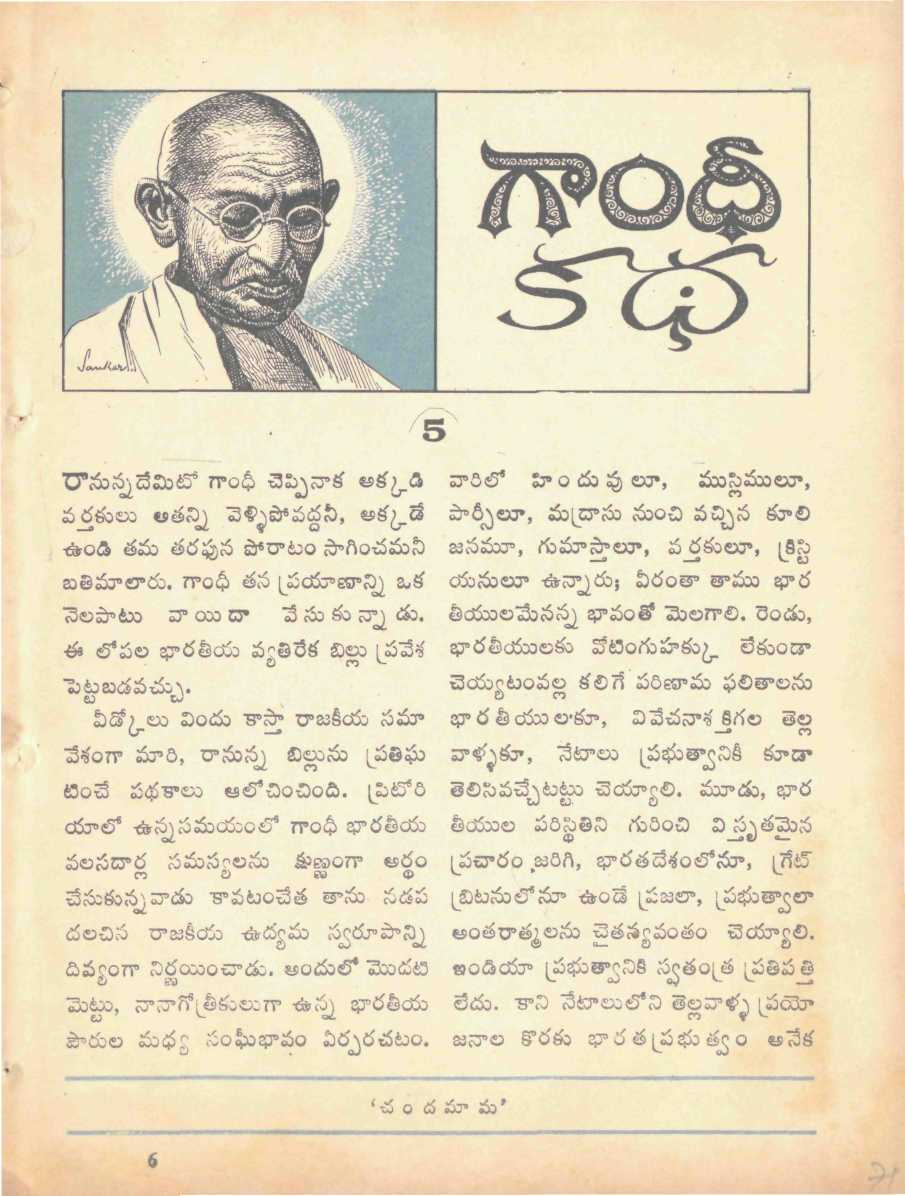 గాంధీ
కథ
Sankar...
5
రానున్నదేమిటో గాంధీ చెప్పినాక అక్కడి
వర్తకులు ఆతన్ని వెళ్ళిపోవద్దనీ, అక్కడే
ఉండి తమ తరఫున పోరాటం సాగించమనీ
బతిమాలారు. గాంధీ తన ప్రయాణాన్ని ఒక
నెలపాటు వాయిదా వేసుకున్నాడు.
ఈ లోపల భారతీయ వ్యతిరేక బిల్లు ప్రవేశ
పెట్టబడవచ్చు.
వీడ్కోలు విందు కాస్తా రాజకీయ సమా
వేశంగా మారి, రానున్న బిల్లును ప్రతిఘ
టించే పథకాలు ఆలోచించింది. ప్రిటోరి
యాలో ఉన్నసమయంలో గాంధీ భారతీయ
వలసదార్ల సమస్యలను క్షుణ్ణంగా అర్థం
చేసుకున్నవాడు కావటంచేత తాను నడప
దలచిన రాజకీయ ఉద్యమ స్వరూపాన్ని
దివ్యంగా నిర్ణయించాడు. అందులో మొదటి
మెట్టు, నానాగోత్రీకులుగా ఉన్న భారతీయ
పౌరుల మధ్య సంఘీభావం ఏర్పరచటం.
వారిలో హిందువులూ, ముస్లిములూ,
పార్సీలూ, మద్రాసు నుంచి వచ్చిన కూలి
జనమూ, గుమాస్తాలూ, వర్తకులూ, క్రిస్టి
యనులూ ఉన్నారు; వీరంతా తాము భార
తీయులమేనన్న భావంతో మెలగాలి. రెండు,
భారతీయులకు వోటింగుహక్కు లేకుండా
చెయ్యటంవల్ల కలిగే పరిణామ ఫలితాలను
భారతీయులకూ, వివేచనాశక్తిగల తెల్ల
వాళ్ళకూ, నేటాలు ప్రభుత్వానికీ కూడా
తెలిసివచ్చేటట్టు చెయ్యాలి. మూడు, భార
తీయుల పరిస్థితిని గురించి విస్తృతమైన
ప్రచారం జరిగి, భారతదేశంలోనూ, గ్రేట్
బ్రిటనులోనూ ఉండే ప్రజలా, ప్రభుత్వాలా
అంతరాత్మలను చైతన్యవంతం చెయ్యాలి.
ఇండియా ప్రభుత్వానికి స్వతంత్ర ప్రతిపత్తి
లేదు. కాని నేటాలులోని తెల్లవాళ్ళ ప్రయో
జనాల కొరకు భారతప్రభుత్వం అనేక
'చందమామ'
6